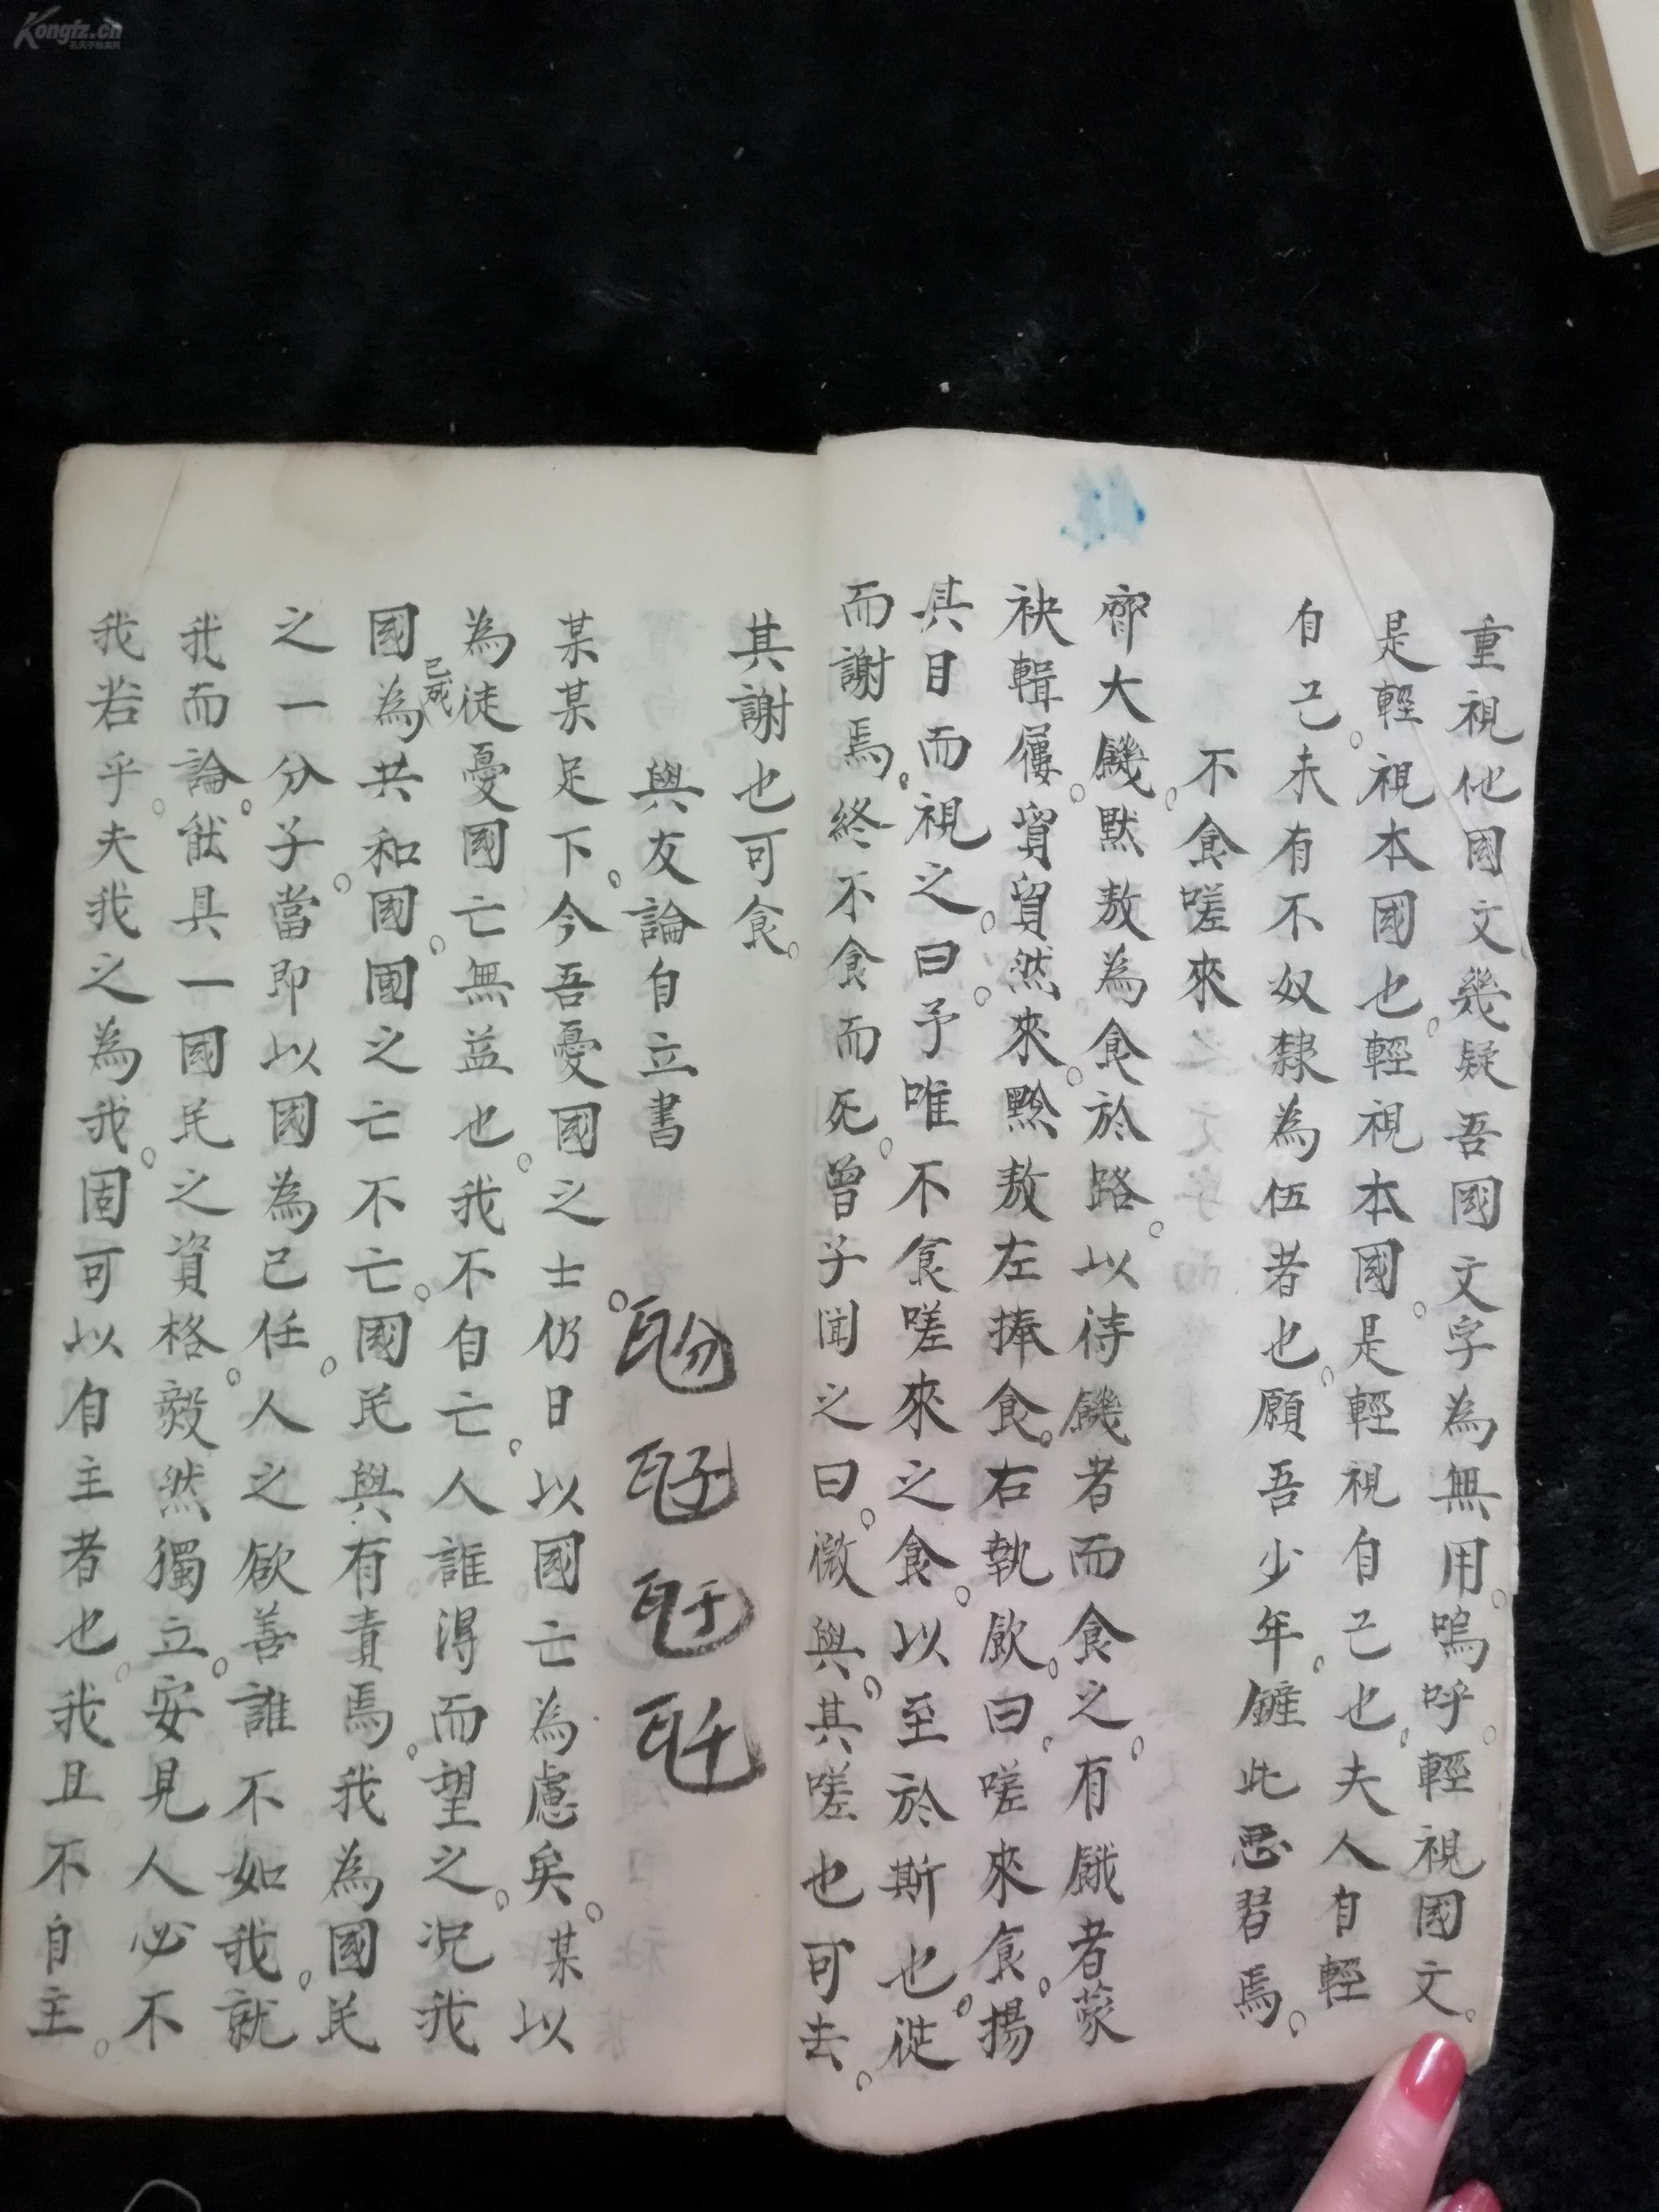 Kongfz.cn
重視他國文幾疑吾國文字為無用。嗚呼。輕視國文。
是輕視本國也。輕視本國。是輕視自己也。夫人自輕
自己。未有不奴隸為伍者也。願吾少年。鏟此惡習焉。
不食嗟來
齊大饑。默敖為食於路。以待饑者而食之。有餓者蒙
袂輯屨。貿貿然來。黔敖左捧食。右執飲。曰。嗟來食。揚
其目而視之。曰。予唯不食嗟來之食。以至於斯也。從
而謝焉。終不食而死。曾子聞之曰。微與。其嗟也可去。
其謝也可食。
與友論自立書
某某足下。今吾憂國之士仍日以國亡為慮矣。某以
為徒憂國亡無益也。我不自亡。人誰得而望之。況我
國已成為共和國。國之亡不亡。國民與有責焉。我為國民
之一分子。當即以國為己任。人之欲善誰不如我。就
我而論。能具一國民之資格。毅然獨立。安見人必不
我若乎。夫我之為我。固可以自主者也。我且不自主。